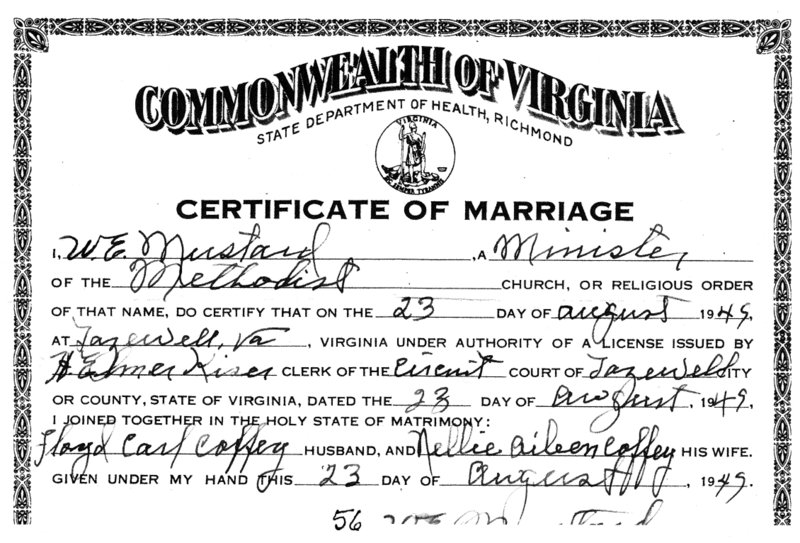 COMMONWEALTH OF VIRGINIA
STATE DEPARTMENT OF HEALTH, RICHMOND
VIRGINIA
SIC SEMPER TYRANNIS
CERTIFICATE OF MARRIAGE
I, W.E. Mustard, A Minister
OF THE Methodist CHURCH, OR RELIGIOUS ORDER
OF THAT NAME, DO CERTIFY THAT ON THE 23 DAY OF august 1949,
AT Tazewell, Va, VIRGINIA UNDER AUTHORITY OF A LICENSE ISSUED BY
H Elmer Kiser CLERK OF THE Circuit COURT OF Tazewell CITY
OR COUNTY, STATE OF VIRGINIA, DATED THE 23 DAY OF august, 1949,
I JOINED TOGETHER IN THE HOLY STATE OF MATRIMONY:
Floyd Carl Coffey HUSBAND, AND Nellie Aileen Coffey HIS WIFE.
GIVEN UNDER MY HAND THIS 23 DAY OF august, 1949.
56 W E Mustard